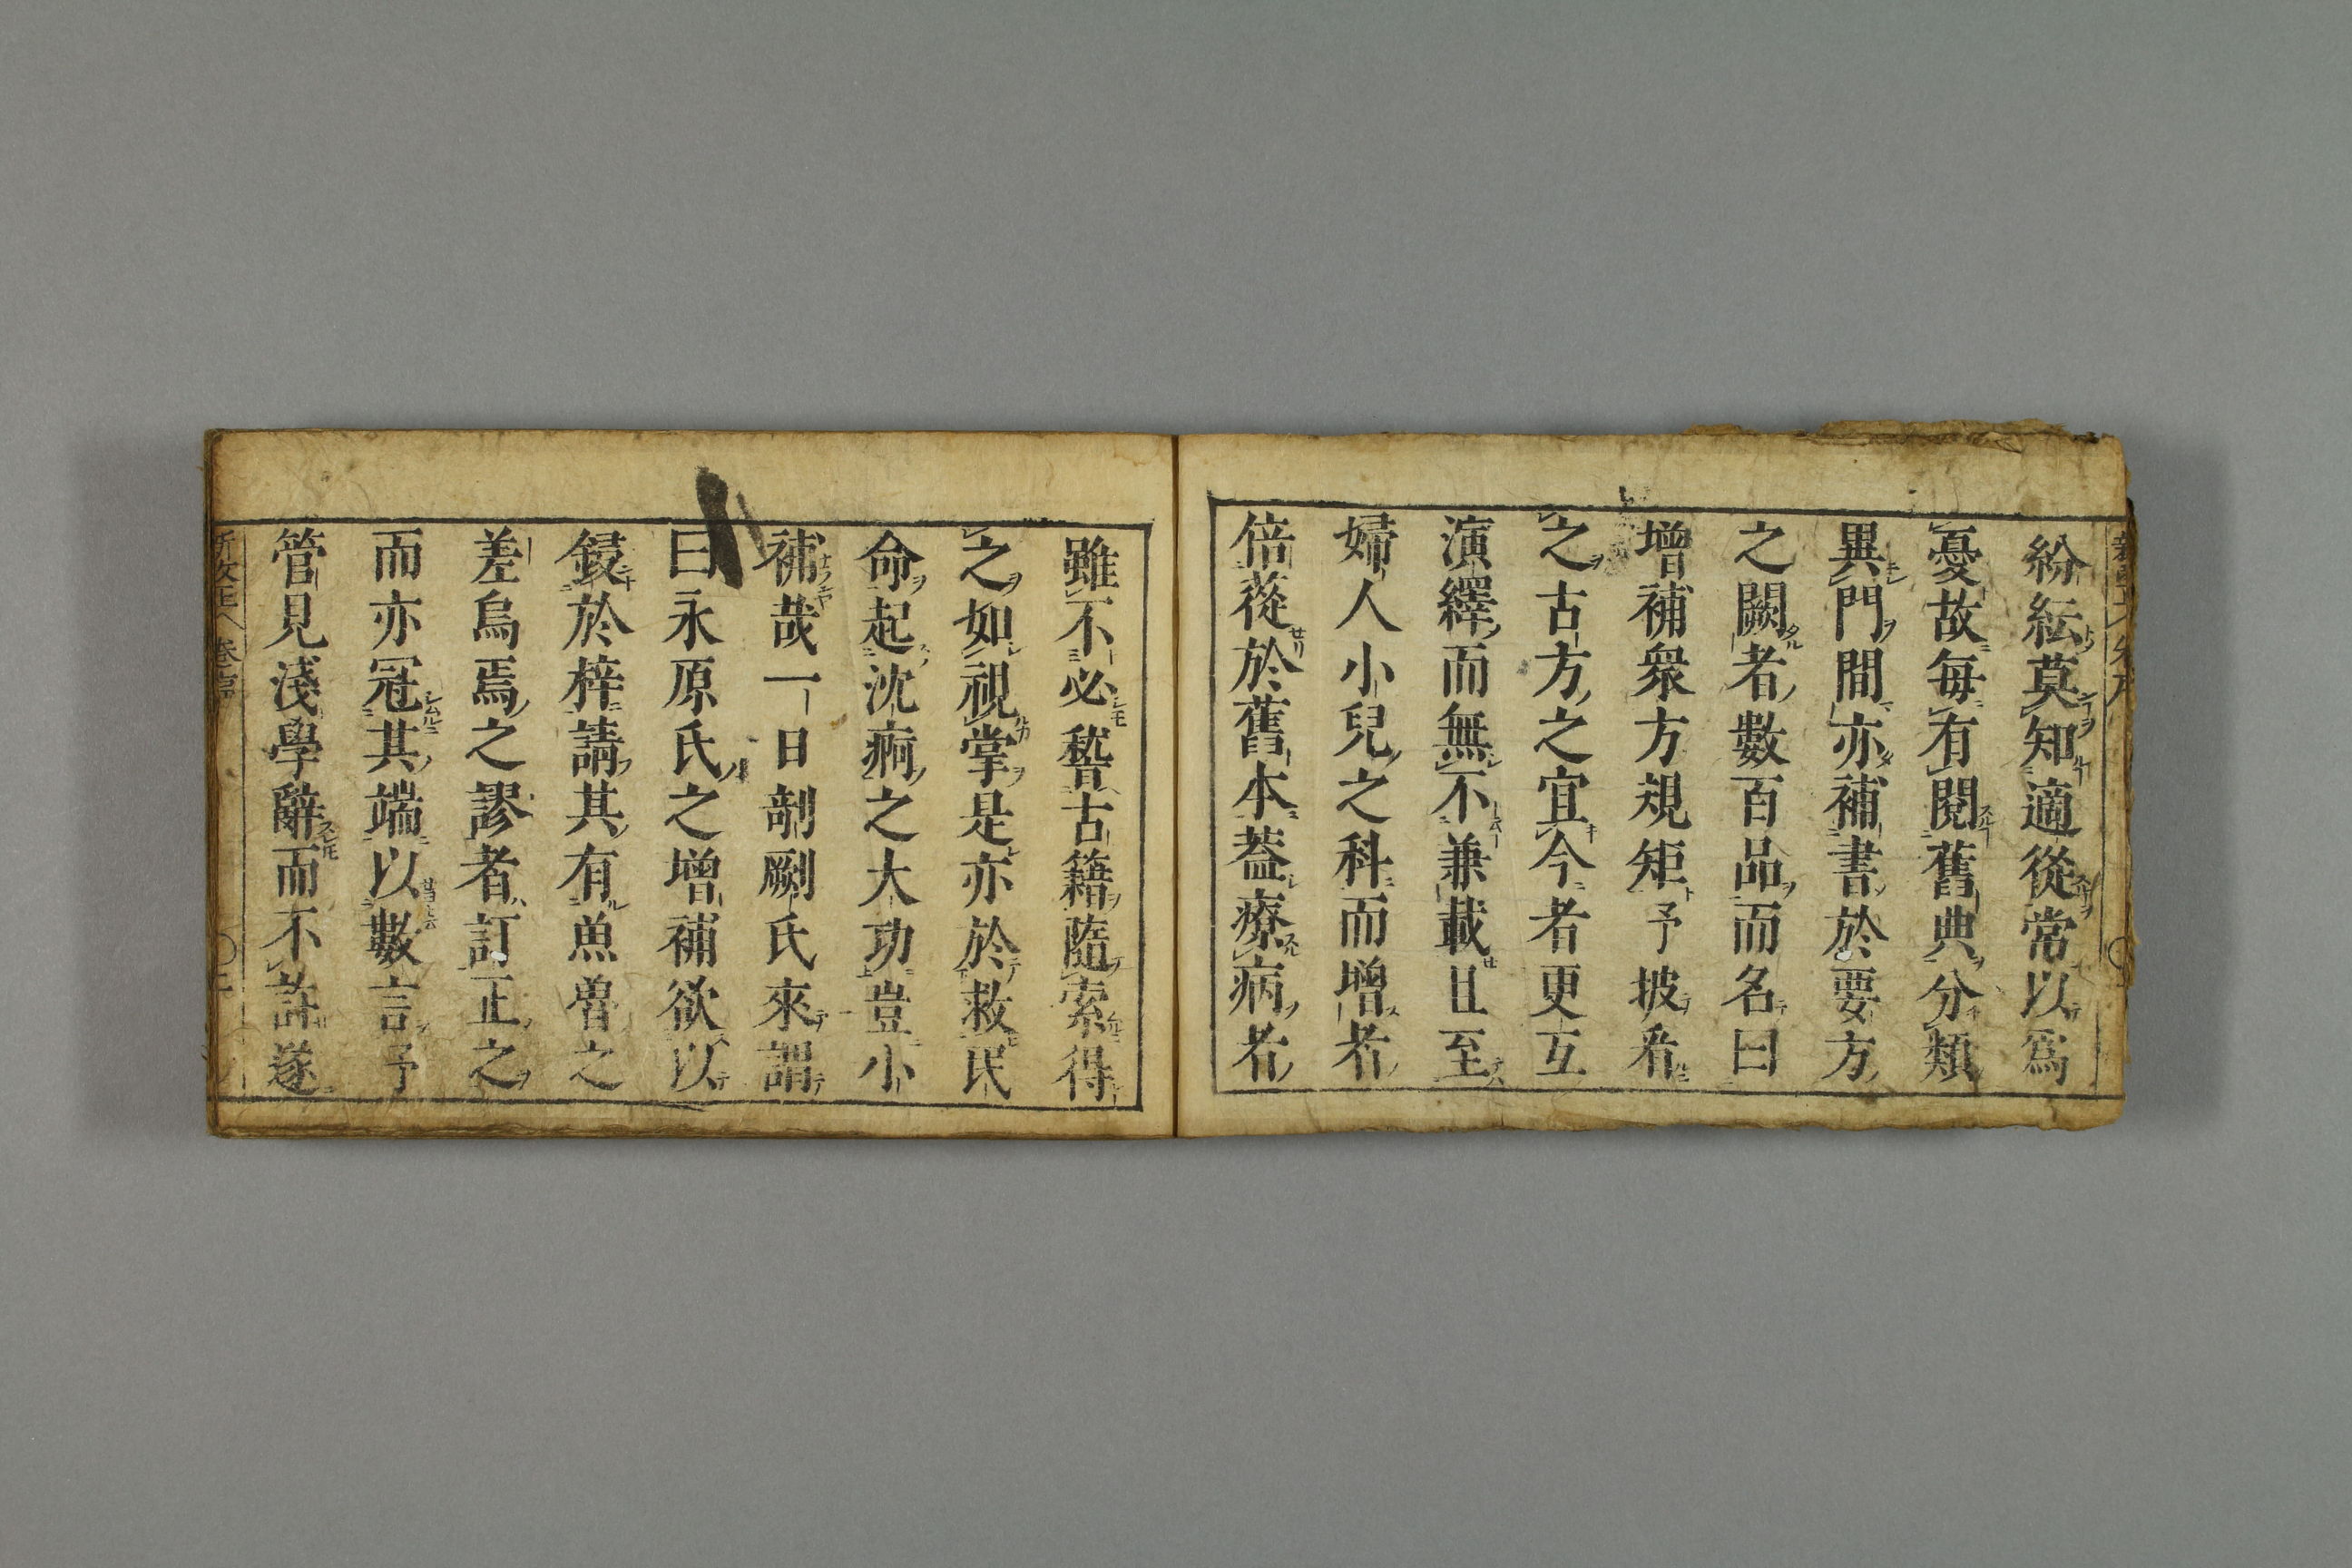 紛紜莫知適從常以爲
憂故每有閱舊典分類
異門間亦補書於要方
之闕者數百品而名曰
增補衆方規矩予披看
之古方之宜今者更互
演繹而無不兼載且至
婦人小兒之科而增者
倍蓰於舊本蓋療病者
雖不必稽古籍隨索得
之如視掌是亦於救民
命起沈痾之大功豈小
補哉一日剞劂氏來謂
曰永原氏之增補欲以
鋟於梓請其有魚魯之
差烏焉之謬者訂正之
而亦冠其端以數言予
管見淺學辭而不許遂